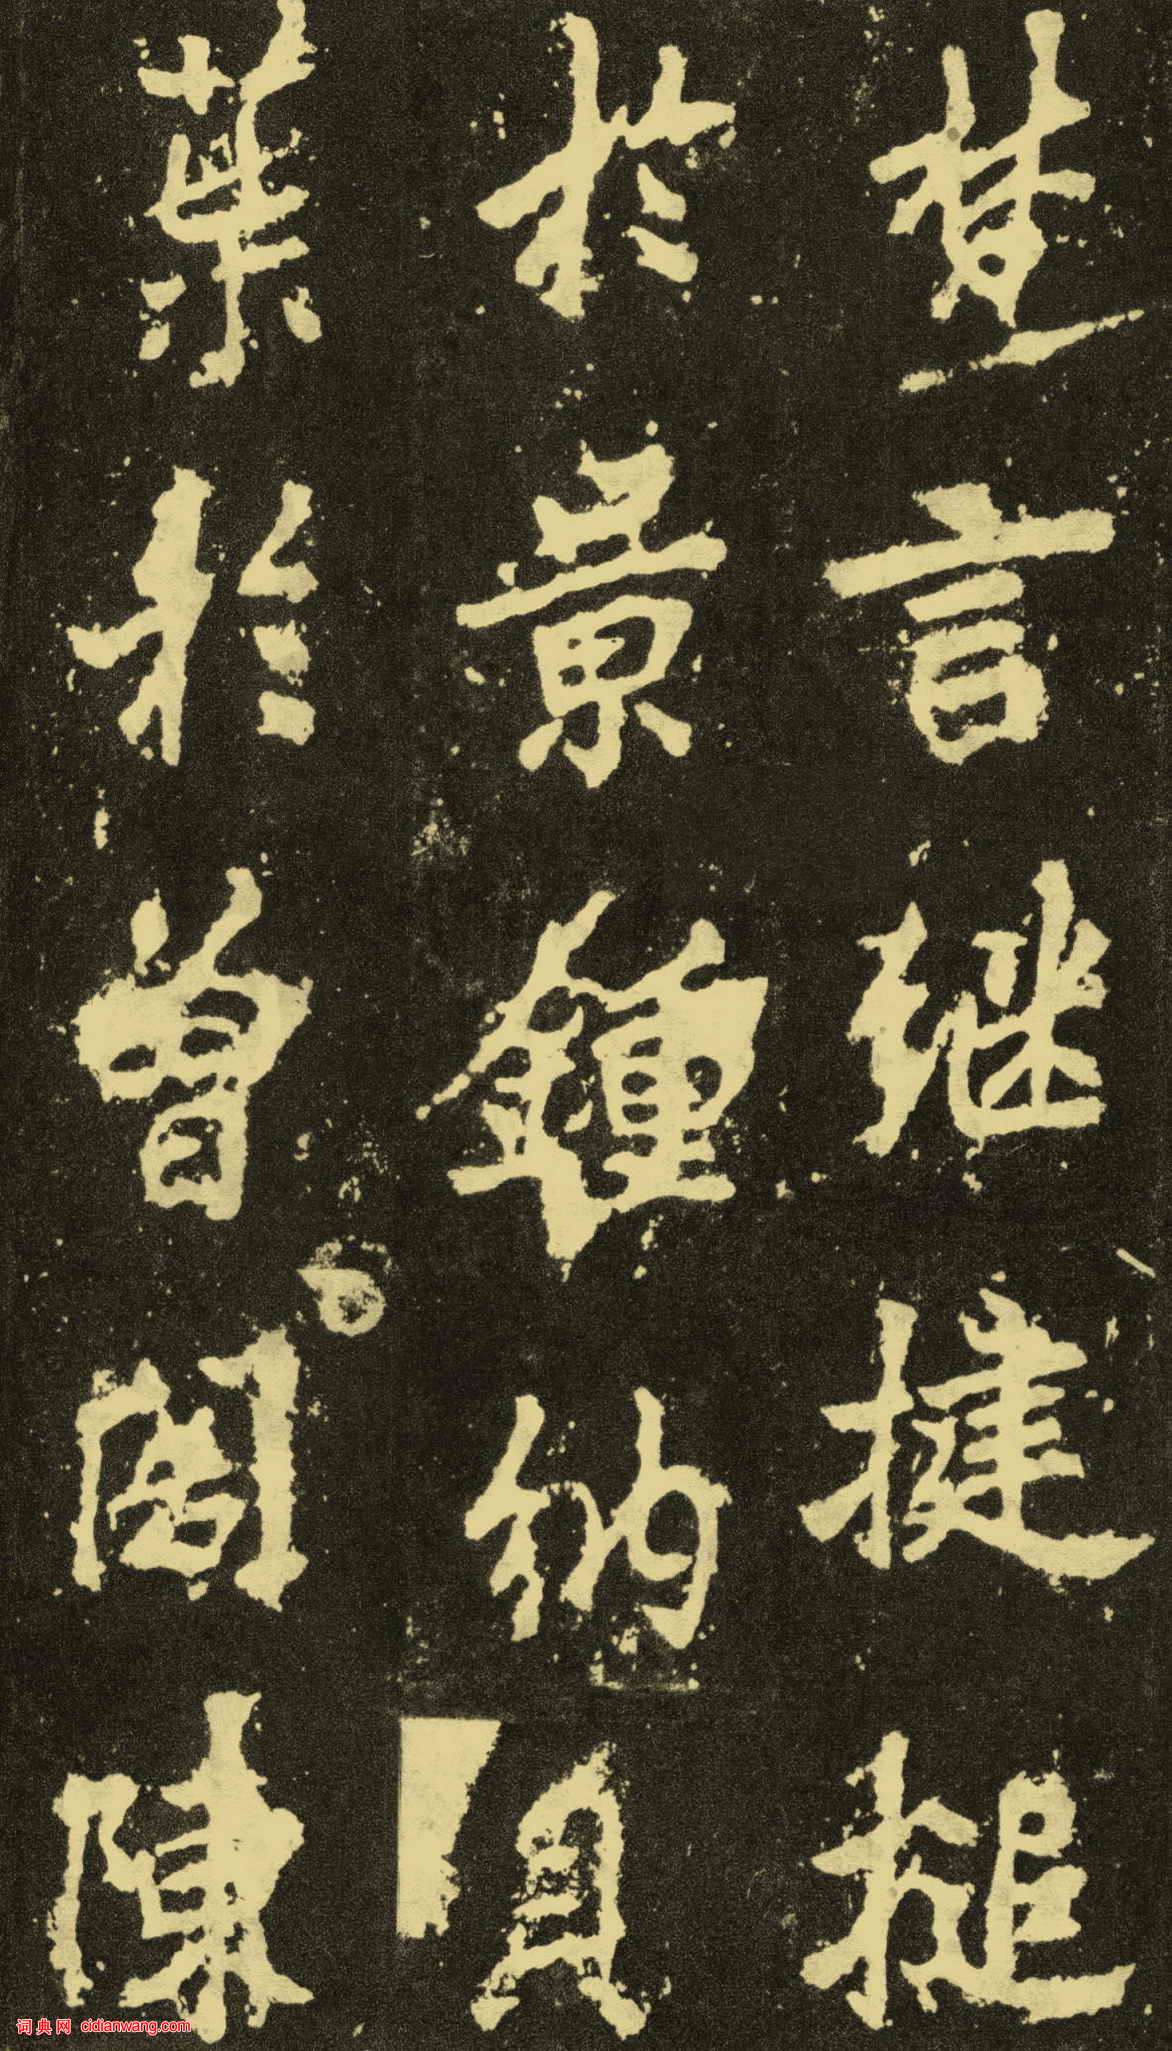 梵言继揵搥
於景鍾納貝
葉於曾閣陳
词典网 cidianwang.com